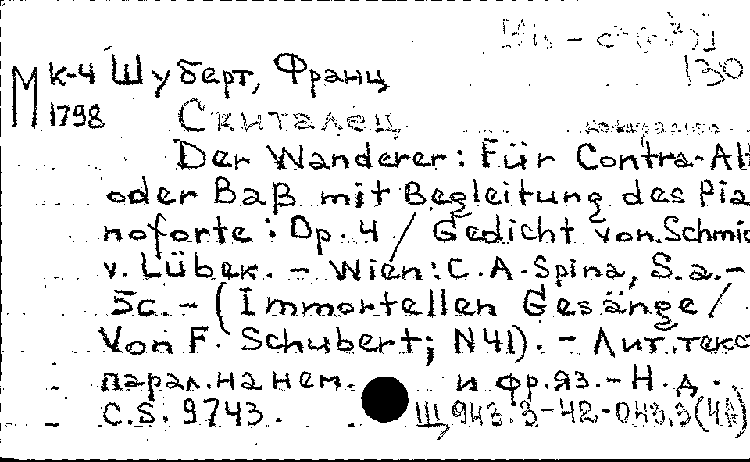 130
К-4 Шуберт, Франц
М 1798 Скиталец
Der Wanderer: Für Contra-Alt
oder Baß mit Begleitung des Pia
noforte: Op. 4 / Gedicht von Schmid
v. Lübek. - Wien: C.A. Spina, S.a.-
5c. - (Immortellen Gesänge /
Von F. Schubert; N41). - Лит. текс
парал. на нем. и фр. яз. - Н.д.
C.S. 9743. Щ 943.3-42-043.3(4А)